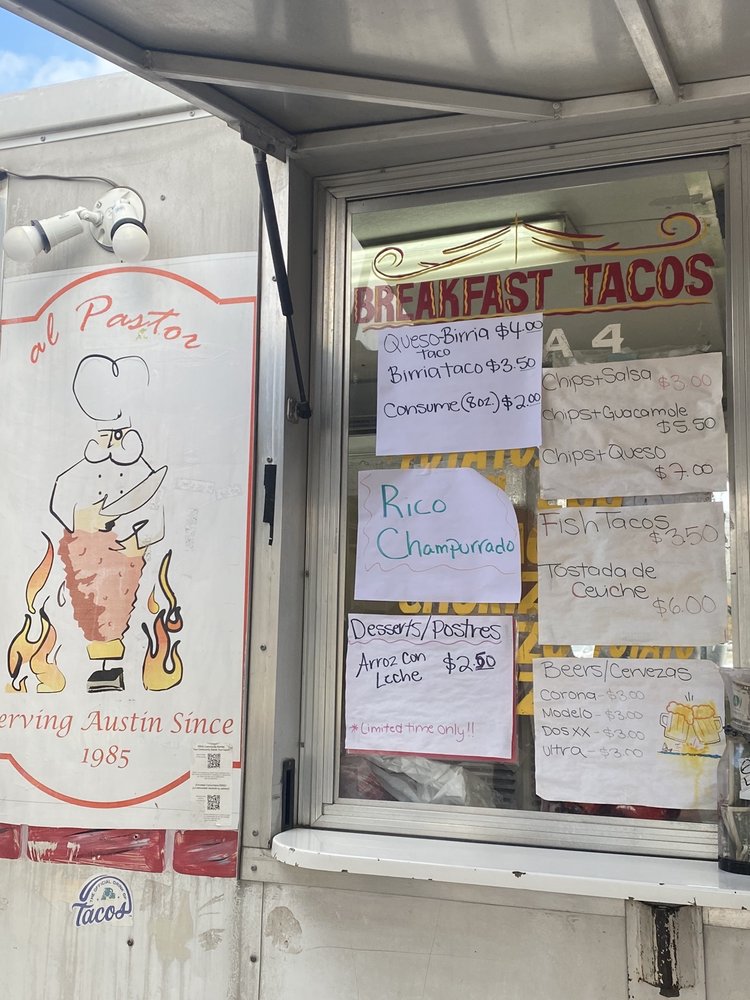 al Pastor
Serving Austin Since
1985
THE OFFICIAL DRINK OF
Tacos
BREAKFAST TACOS
A 4
Queso-Birria $4.00
taco
Birria taco $3.50
Consume (8oz.) $2.00
Rico
Champurrado
Desserts/Postres
Arroz con $2.50
Leche
*Limited time only!!
Chips+Salsa $3.00
Chips+Guacamole
$5.50
Chips+Queso
$7.00
Fish Tacos
$3.50
Tostada de
Ceuiche
$6.00
Beers/Cervezas
Corona - $3.00
Modelo - $3.00
Dos XX - $3.00
Ultra - $3.00